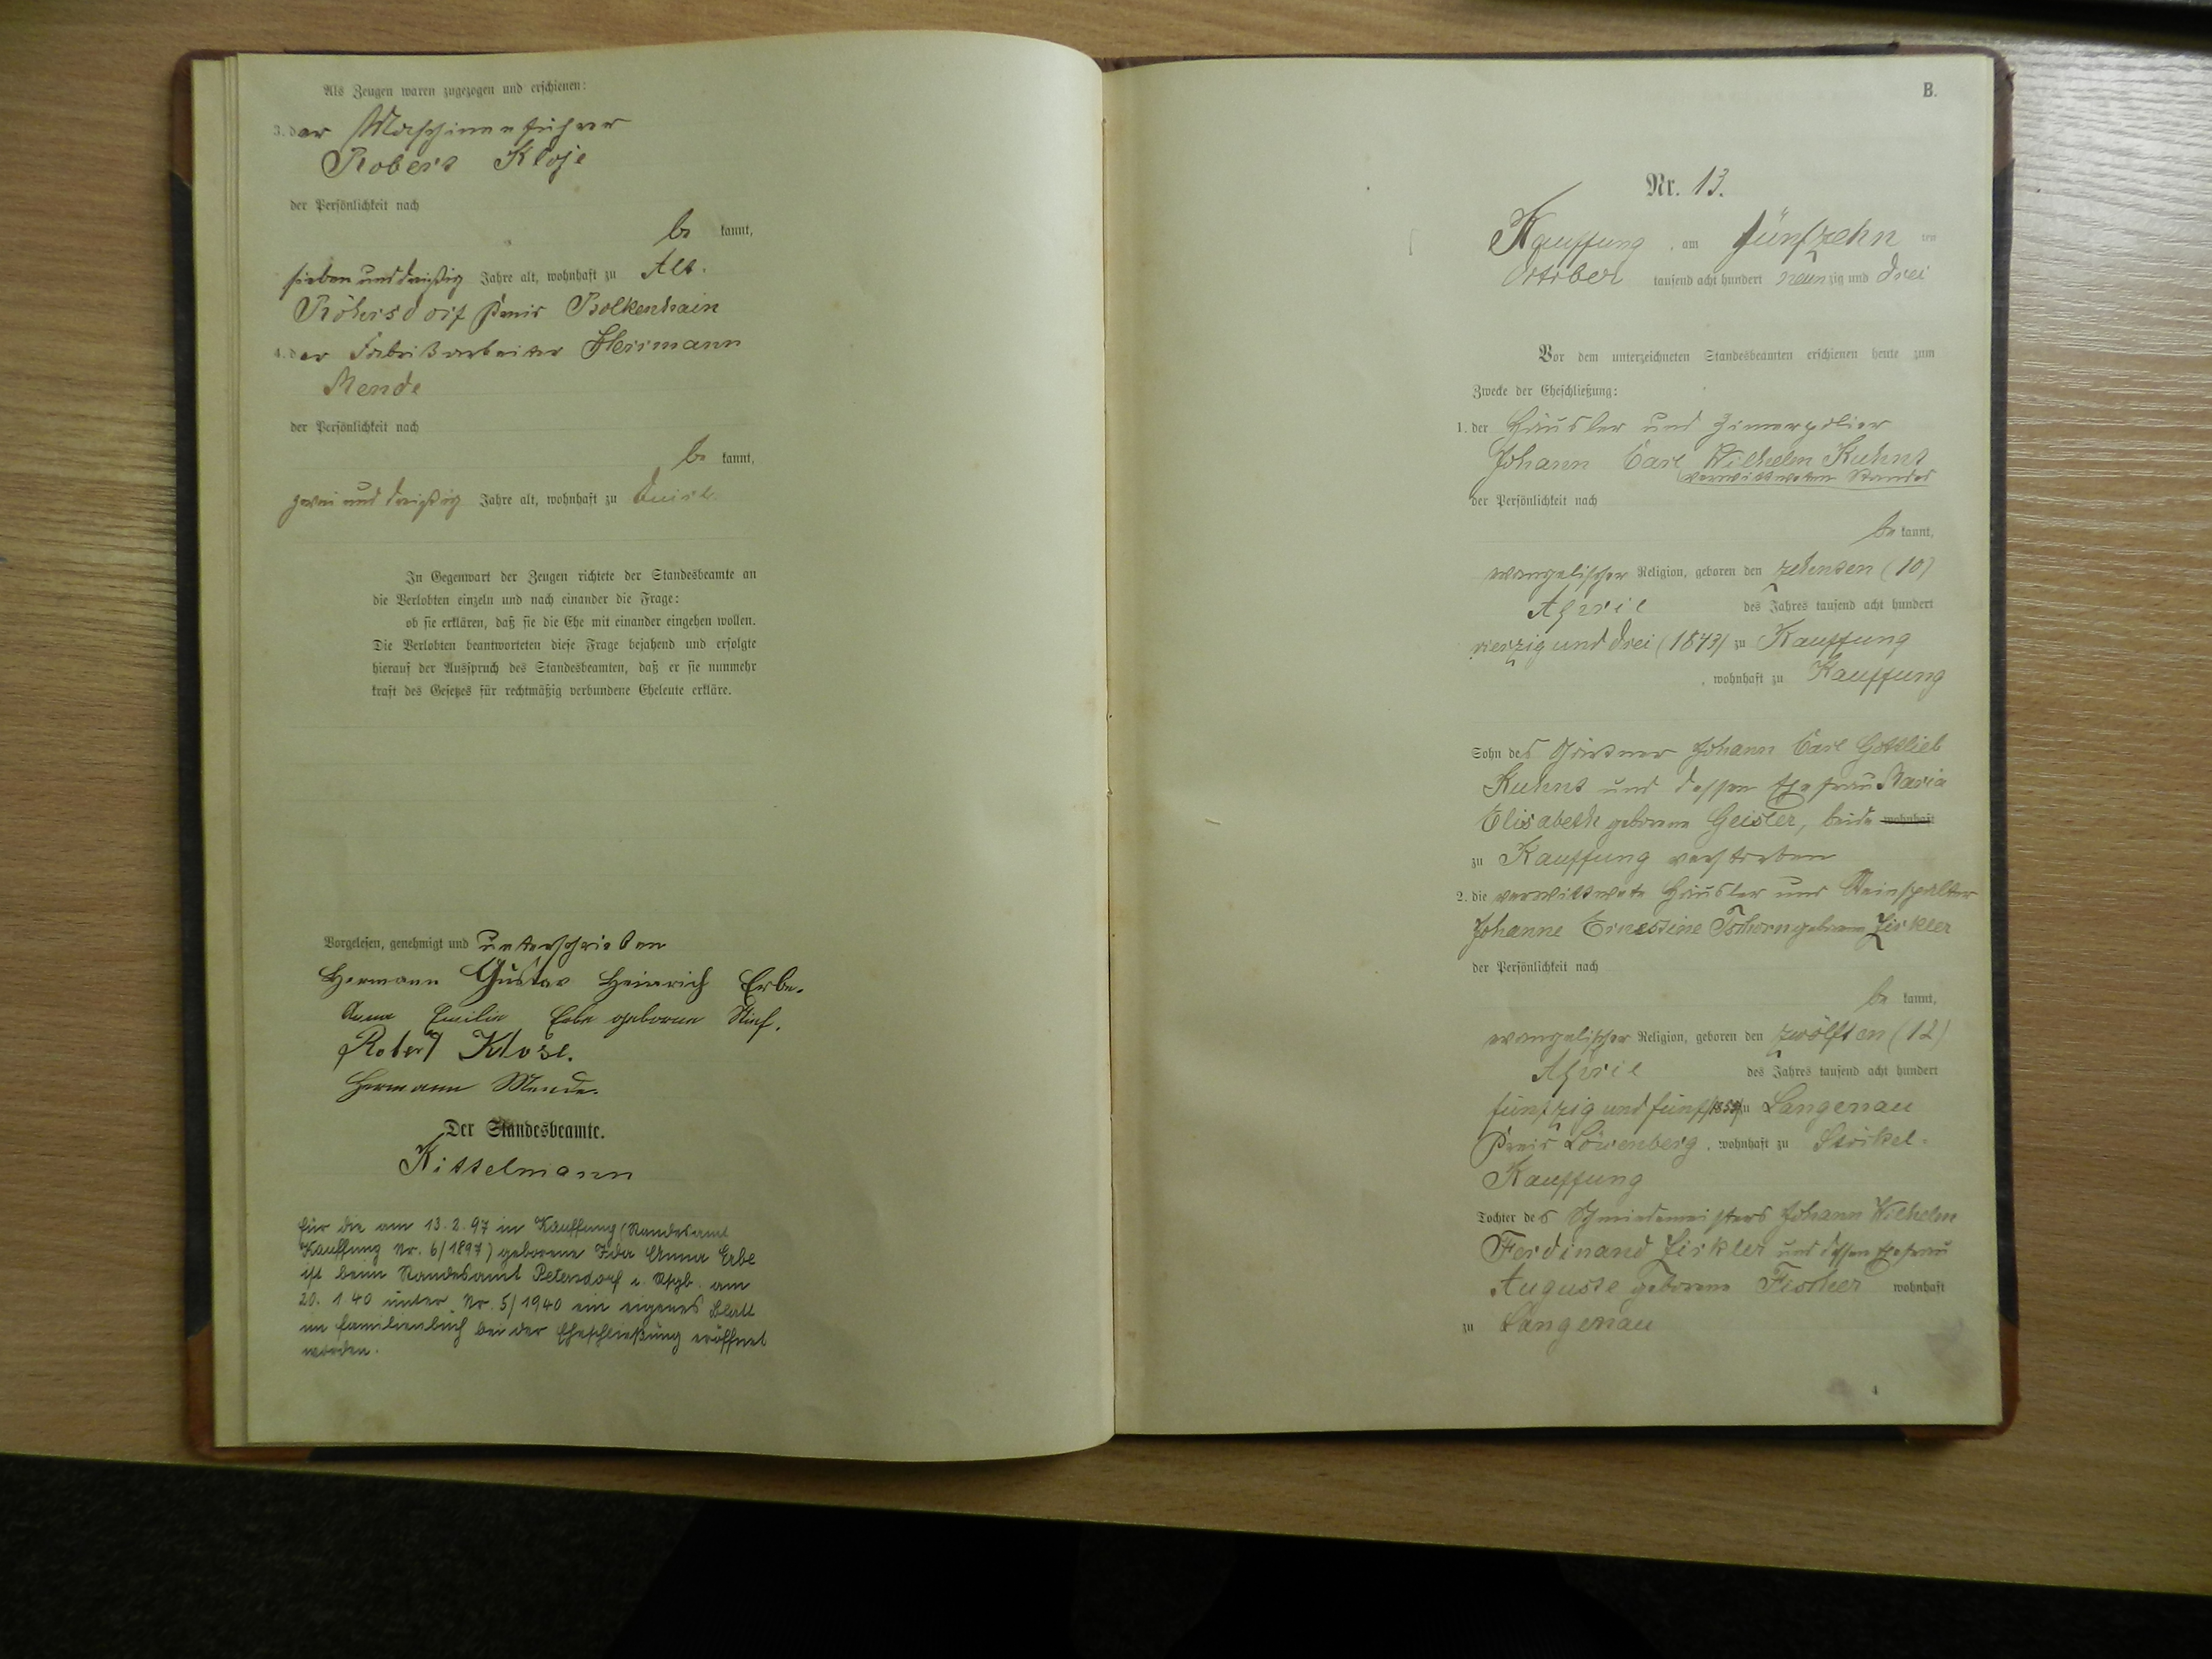 Als Zeugen waren zugezogen und erschienen:
3. der Maschinenführer
Robert Klose
der Persönlichkeit nach
be kannt,
sieben und dreißig Jahre alt, wohnhaft zu Alt-
Röhrsdorf Kreis Bolkenhain
4. der Fabrikarbeiter Herrmann
Mende
der Persönlichkeit nach
be kannt,
zwei und dreißig Jahre alt, wohnhaft zu
In Gegenwart der Zeugen richtete der Standesbeamte an
die Verlobten einzeln und nach einander die Frage:
ob sie erklären, daß sie die Ehe mit einander eingehen wollen.
Die Verlobten beantworteten diese Frage bejahend und erfolgte
hierauf der Ausspruch des Standesbeamten, daß er sie nunmehr
kraft des Gesetzes für rechtmäßig verbundene Eheleute erkläre.
Vorgelesen, genehmigt und unterschrieben
Hermann Gustav Heinrich Erbe.
Anna Emilie Erbe geborene
Robert Klose.
Hermann Mende.
Der Standesbeamte.
Kittelmann
Für die am 13.2.97 in Kauffung (Standesamt
Kauffung Nr. 6/1897) geborene Ida Anna Erbe
ist beim Standesamt Petersdorf i. Rsgb. am
20.1.40 unter Nr. 5/1940 ein eigenes Blatt
im Familienbuch bei der Eheschließung eröffnet
worden.
B.
Nr. 13.
Kauffung, am fünfzehn ten
October tausend acht hundert neunzig und drei
Vor dem unterzeichneten Standesbeamten erschienen heute zum
Zwecke der Eheschließung:
1. der Häusler und Zimerpolier
Johann Carl Wilhelm Kuhnt
verwittweten Standes
der Persönlichkeit nach
be kannt,
evangelischer Religion, geboren den zehnten (10)
April des Jahres tausend acht hundert
vierzig und drei (1843) zu Kauffung
, wohnhaft zu Kauffung
Sohn des Gärtner Johann Carl Gottlieb
Kuhnt und dessen Ehefrau Maria
Elisabeth geborene Geisler, beide wohnhaft
zu Kauffung verstorben
2. die verwittwete Häusler und Steinspalter
Johanne Ernestine Tschorn geborene Zirkler
der Persönlichkeit nach
be kannt,
evangelischer Religion, geboren den zwölften (12)
April des Jahres tausend acht hundert
fünfzig und fünf (1855) zu Langenau
Kreis Löwenberg, wohnhaft zu Stöckel-
Kauffung
Tochter des Schmiedemeisters Johann Wilhelm
Ferdinand Zirkler und dessen Ehefrau
Auguste geborene Fischer wohnhaft
zu Langenau
4